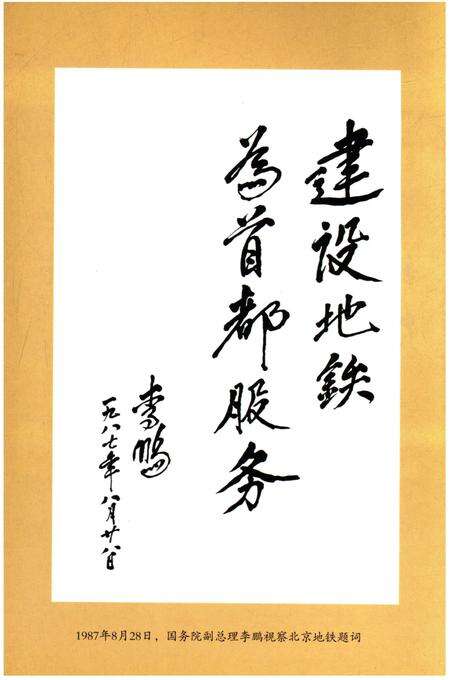 建设地铁
为首都服务
李鹏
一九八七年八月廿八日
1987年8月28日，国务院副总理李鹏视察北京地铁题词